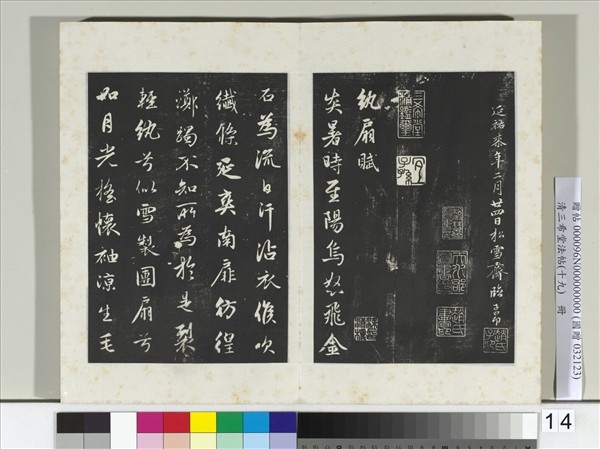 延祐叁年二月廿四日松雪齋昭
三希堂
宜子孫
紈扇賦
炎暑時至陽烏怒飛金
石為流白汗沾衣倏吹
纖絺延爽南扉彷徨
躑躅不知所為於是裂
輕紈兮似雪製團扇兮
如月光搖懷袖涼生毛
贈帖 000096N000000000 (國贈 032123)
清三希堂法帖(十九) 冊
14